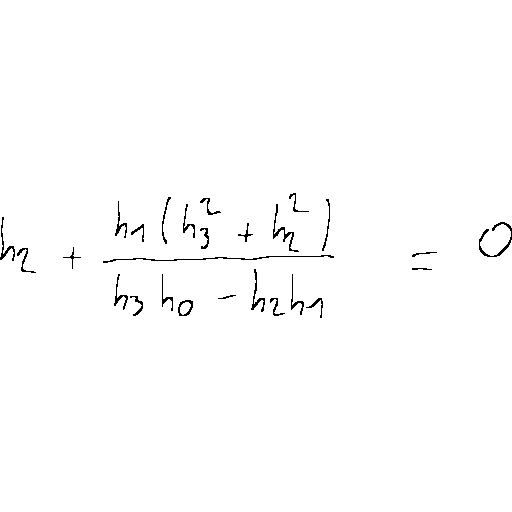 h_2 + \frac{h_1 ( h_3^2 + h_2^2 )}{h_3 h_0 - h_2 h_1} = 0